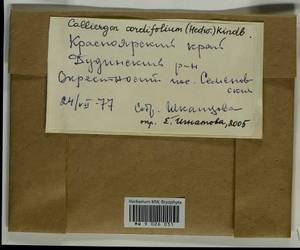 Calliergon cordifolium (Hedw.) Kindb.
Красноярский край
Дудинский р-н
Окрестности пос. Семенов
ский
24/VII 77 Собр. Шкапцова
опр. Е. Игнатова, 2005
Herbarium MW, Bryophyta